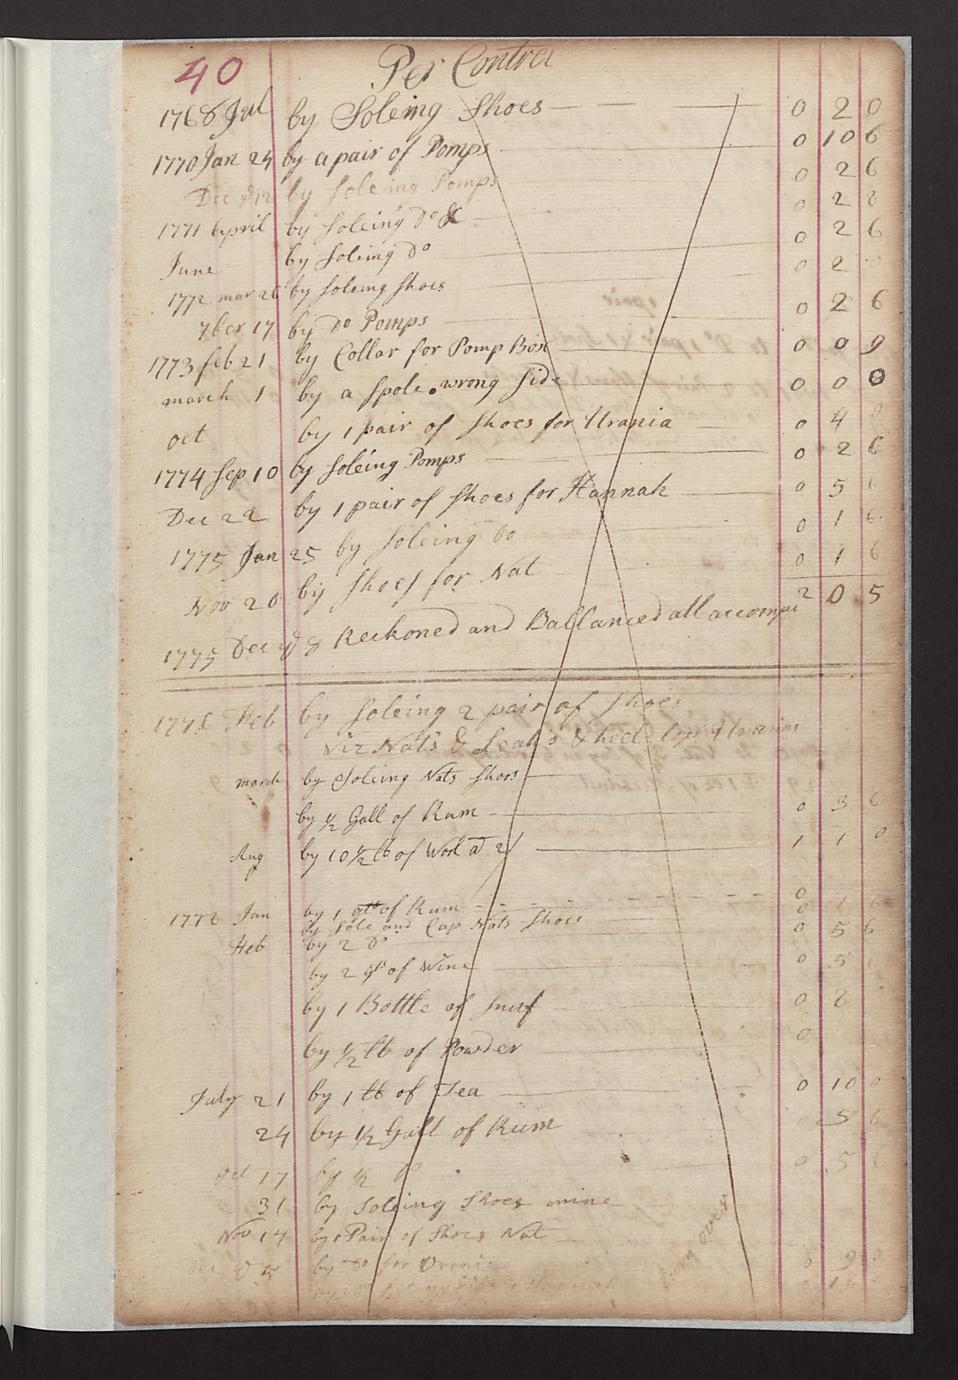 40 Per Contra
1768 Jul by Soleing Shoes 0 2 0
1770 Jan 24 by a pair of Pomps 0 10 6
Dec ye 12 by Soleing Pomps 0 2 6
1771 April by Soleing Do & 0 2 2
June by Soleing Do 0 2 6
1772 mar 26 by Soleing Shoes 0 2
7ber 17 by Do Pomps 0 2 6
1773 feb 21 by Collar for Pomp Box 0 0 9
march 1 by a Spole wrong Side 0 0 0
oct by 1 pair of Shoes for Urania 0 4 0
1774 Sep 10 by Soleing Pomps 0 2 6
Dec 22 by 1 pair of Shoes for Hannah 0 5 6
1775 Jan 25 by Soleing Do 0 1 6
Nov 20 by Shoes for Nat 0 1 6
2 0 5
1775 Dec ye 8 Reckoned and Ballanced all accompts
Feb by Soleing 2 pair of Shoes
viz Nats & Leah's & heel
march by Soleing Nats Shoes
by 1/2 Gall of Rum 0 3 6
Aug by 10 1/2 lb of Wool a 2/ 1 1 0
Jan by 1 qtt of Rum 0
by Sole and Cap Nats Shoes 0 1 6
Feb by 2 Do 0 5 6
by 2 qts of Wine 0 5
by 1 Bottle of Snuf 0 2
by 1/2 lb of Powder 0
July 21 by 1 lb of Tea 0 10 0
24 by 1/2 Gall of Rum 0 5 6
Oct 17 by 1/2 Do 0 5 6
31 by Soleing Shoes mine
Nov 14 by 1 Pair of Shoes Nat
Dec ye 5 by Do for Urania 0 9 0
turn over